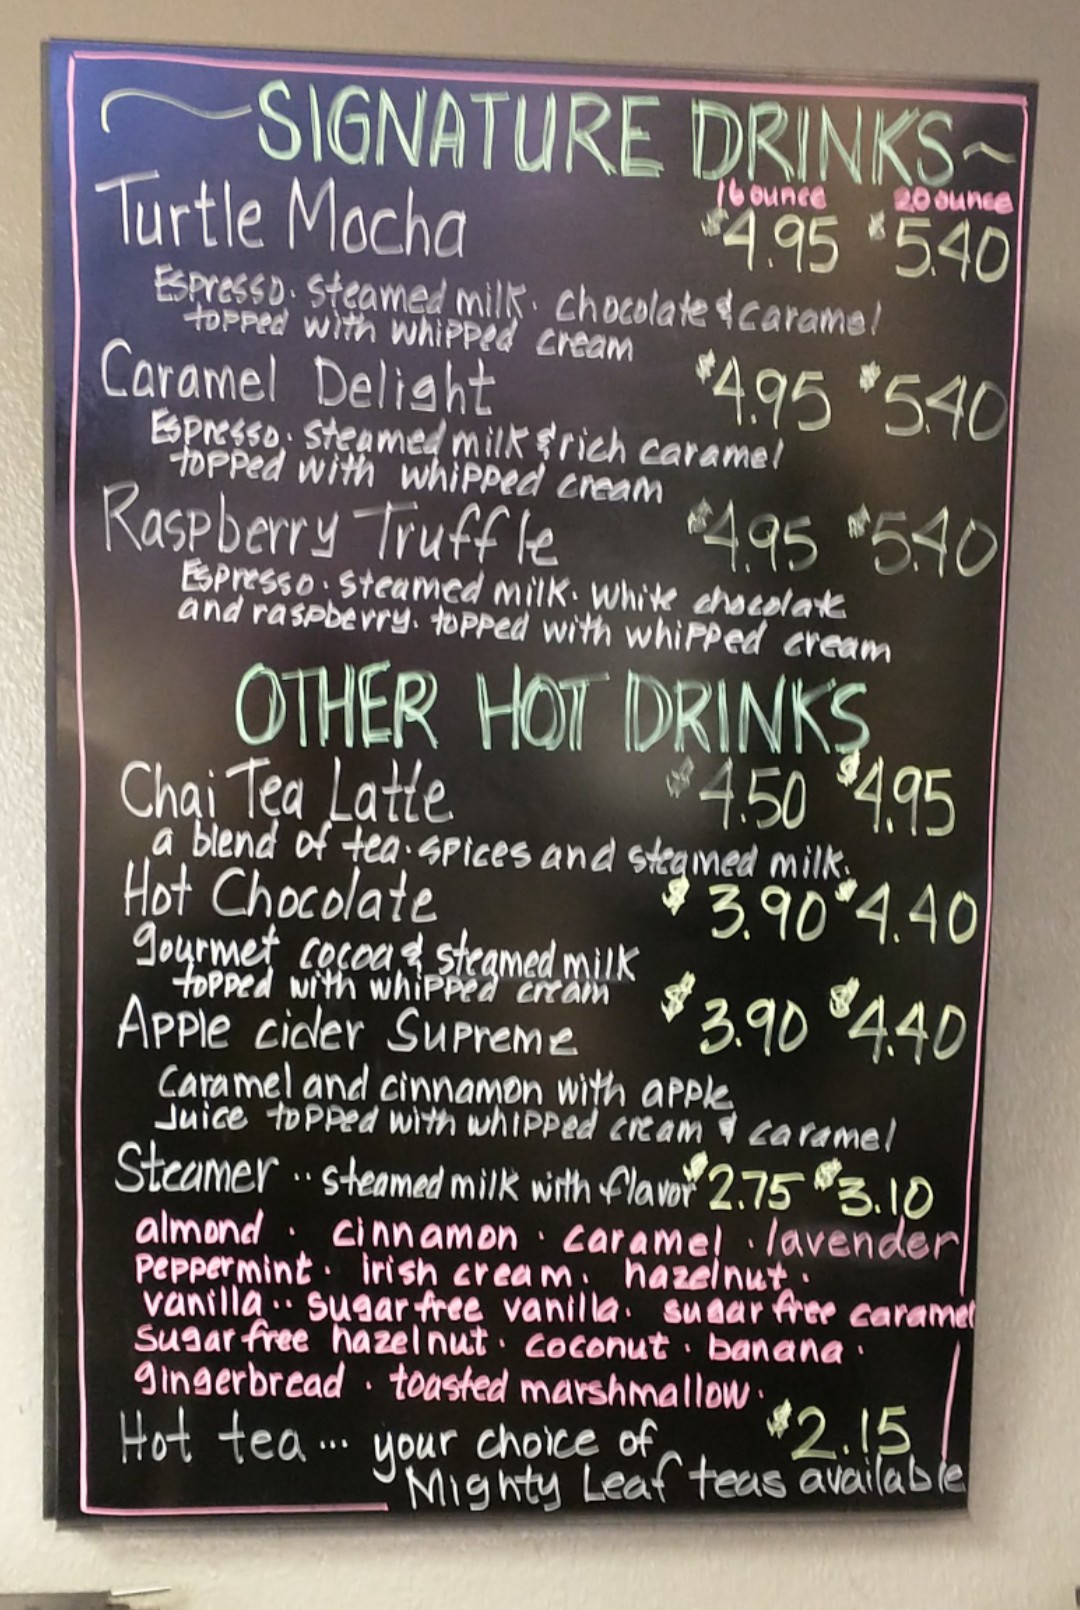 SIGNATURE DRINKS
16 ounce 20 ounce
Turtle Mocha $4.95 $5.40
Espresso. steamed milk. chocolate & caramel
topped with whipped cream
Caramel Delight $4.95 $5.40
Espresso. steamed milk & rich caramel
topped with whipped cream
Raspberry Truffle $4.95 $5.40
Espresso. steamed milk. white chocolate
and raspberry. topped with whipped cream
OTHER HOT DRINKS
Chai Tea Latte $4.50 $4.95
a blend of tea. spices and steamed milk.
Hot Chocolate $3.90 $4.40
gourmet cocoa & steamed milk
topped with whipped cream
Apple cider Supreme $3.90 $4.40
Caramel and cinnamon with apple
Juice topped with whipped cream & caramel
Steamer .. steamed milk with flavor $2.75 $3.10
almond . cinnamon . caramel . lavender
peppermint . irish cream . hazelnut .
vanilla .. sugar free vanilla . sugar free caramel
Sugar free hazelnut . coconut . banana .
gingerbread . toasted marshmallow .
Hot tea ... your choice of $2.15
Mighty Leaf teas available